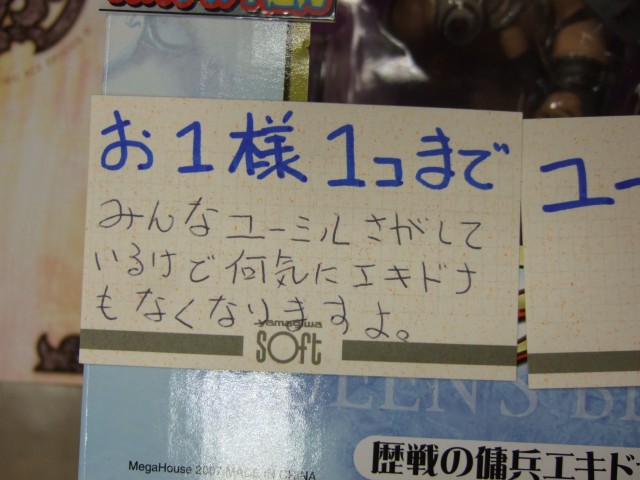 お1様 1コまで
みんなユーミルさがして
いるけど何気にエキドナ
もなくなりますよ。
yamagiwa
soft
ユー
QUEEN'S B
MegaHouse 2007 MADE IN CHINA
歴戦の傭兵エキド